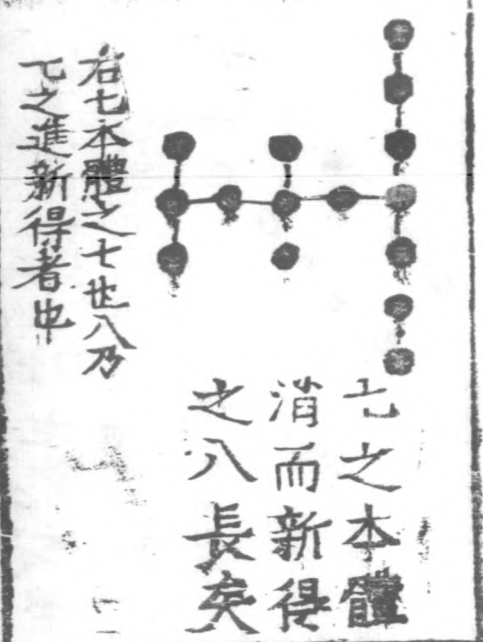 七之本體
消而新得
之八長矣
右七本體之七也八乃
七之進新得者也